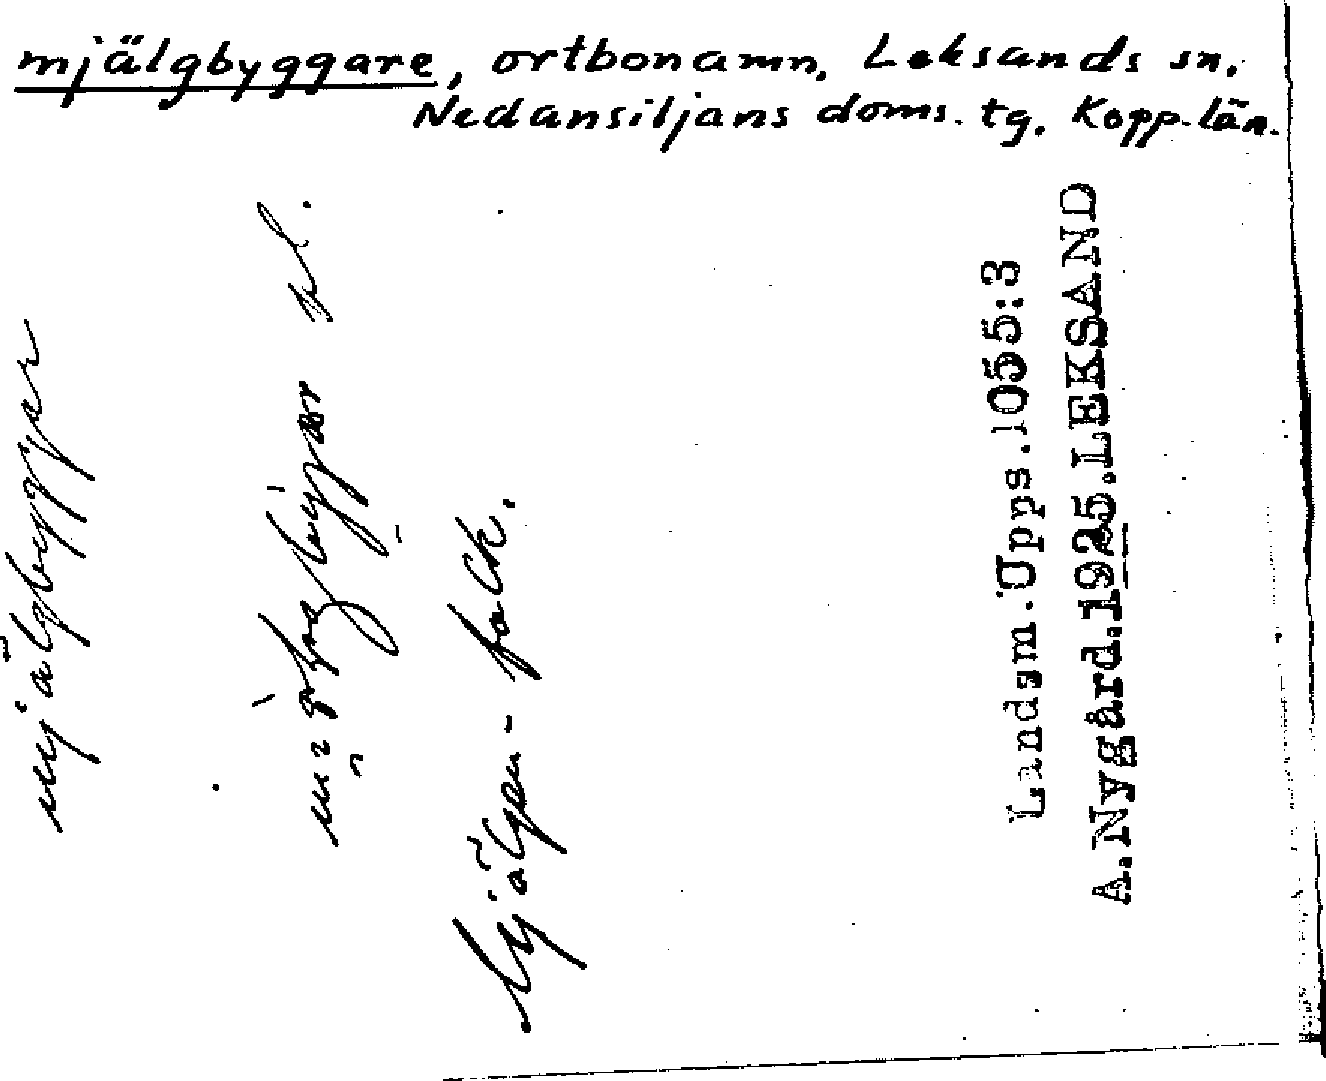 mjälgbyggare, ortbonamn, Leksands sn,
Nedansiljans doms. tg. Kopp. län.
mjälgbyggar
pl.
Mjälgen - fack.
Landsm.Upps.1055:3
A.Nygård.1925.LEKSAND